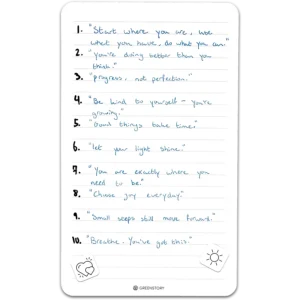 1. "Start where you are, use
what you have, do what you can."
2. "You're doing better than you
think."
3. "progress, not perfection."
4. "Be kind to yourself - you're
growing."
5. "Good things take time."
6. "let your light shine."
7. "You are exactly where you
need to be."
8. "Choose joy everyday."
9. "Small steps still move forward."
10. "Breathe. You've got this."
GREENSTORY